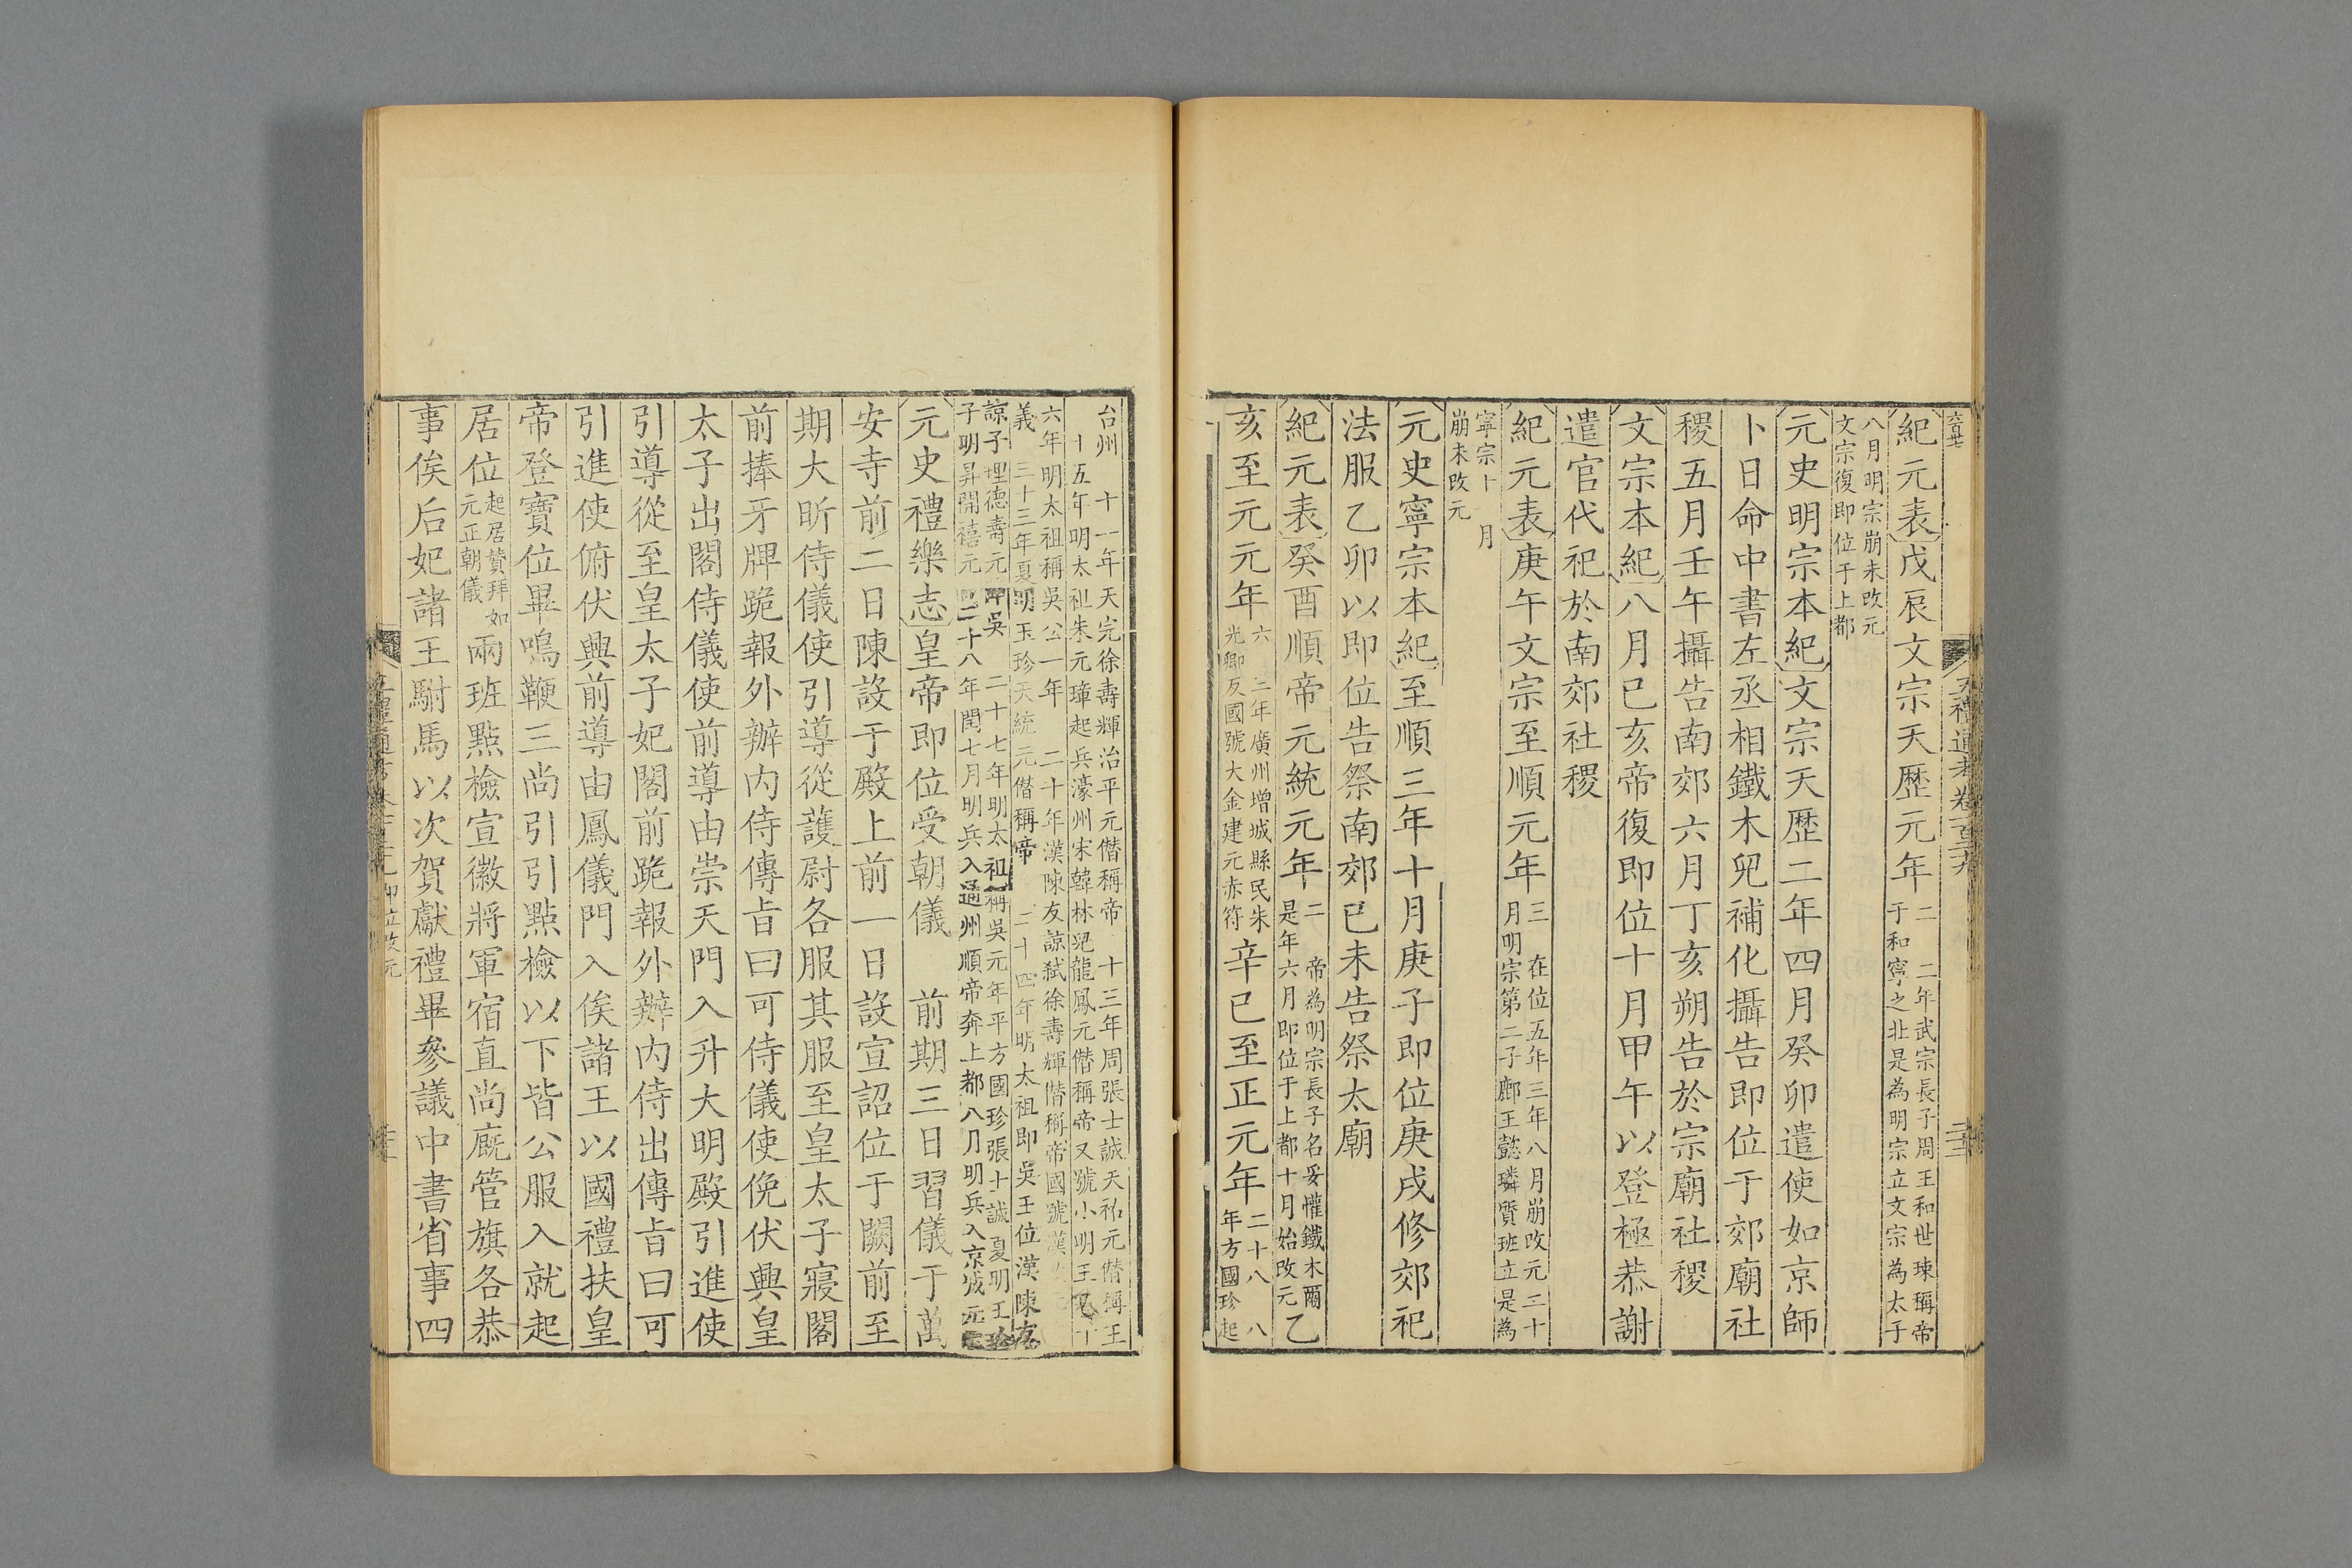 五禮通考卷一百二十九
紀元表戊辰文宗天歷元年二 二年武宗長子周王和世㻋稱帝于和寧之北是為明宗立文宗為太子
八月明宗崩未改元文宗復即位于上都
元史明宗本紀文宗天歷二年四月癸卯遣使如京師
卜日命中書左丞相鐵木兒補化攝告即位于郊廟社
稷五月壬午攝告南郊六月丁亥朔告於宗廟社稷
文宗本紀八月己亥帝復即位十月甲午以登極恭謝
遣官代祀於南郊社稷
紀元表庚午文宗至順元年三 在位五年三年八月崩改元二十月明宗第二子鄜王懿璘質班立是為
寧宗十一月崩未改元
元史寧宗本紀至順三年十月庚子即位庚戌修郊祀
法服乙卯以即位告祭南郊己未告祭太廟
紀元表癸酉順帝元統元年二 帝為明宗長子名妥懽鐵木爾是年六月即位于上都十月始改元乙
亥至元元年六 三年廣州增城縣民朱光卿反國號大金建元赤符辛巳至正元年二十八 八年方國珍起
台州 十一年天完徐壽輝治平元僭稱帝 十三年周張士誠天祐元僭稱王 十五年明太祖朱元璋起兵濠州宋韓林兒龍鳳元僭稱帝又號小明王見十
六年明太祖稱吳公一年 二十年漢陳友諒弒徐壽輝僭稱帝國號漢 義 三十三年夏明玉珍天統元僭稱帝 二十四年明太祖即吳王位漢陳友
諒子理德壽元降吳 二十七年明太祖稱吳元年平方國珍張士誠夏明玉珍子明昇開禧元 二十八年閏七月明兵入通州順帝奔上都八月明兵入京城元
元史禮樂志皇帝即位受朝儀 前期三日習儀于萬
安寺前二日陳設于殿上前一日設宣詔位于闕前至
期大昕侍儀使引導從護尉各服其服至皇太子寢閤
前捧牙牌跪報外辦內侍傳旨曰可侍儀使俛伏興皇
太子出閤侍儀使前導由崇天門入升大明殿引進使
引導從至皇太子妃閤前跪報外辦內侍出傳旨曰可
引進使俯伏興前導由鳳儀門入俟諸王以國禮扶皇
帝登寶位畢鳴鞭三尚引引點檢以下皆公服入就起
居位起居贊拜如元正朝儀兩班點檢宣徽將軍宿直尚廐管旗各恭
事俟后妃諸王駙馬以次賀獻禮畢參議中書省事四